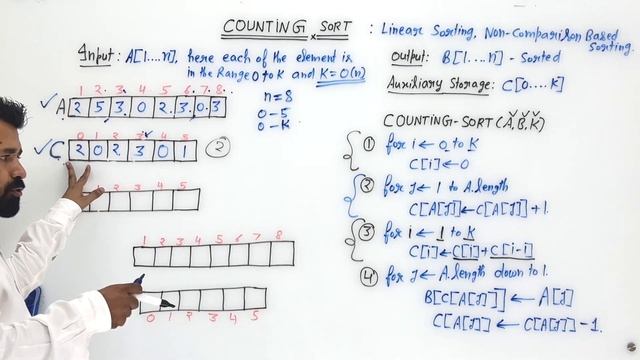 COUNTING SORT : Linear Sorting, Non-Comparison Based Sorting.
Input: A[1....n], here each of the element is
in the Range 0 to K and K=O(n)
Output: B[1....n] - Sorted
Auxiliary Storage: C[0....K]
1 2 3 4 5 6 7 8
A 2 5 3 0 2 3 0 3
n=8
0-5
0-K
0 1 2 3 4 5
C 2 0 2 3 0 1 ②
2 3 4 5
1 2 3 4 5 6 7 8
0 1 2 3 4 5
COUNTING-SORT(A,B,K)
① for i ← 0 to K
C[i] ← 0
② for J ← 1 to A.length
C[A[J]] ← C[A[J]] + 1.
③ for i ← 1 to K
C[i] ← C[i] + C[i-1]
④ for J ← A.length down to 1.
B[C[A[J]]] ← A[J]
C[A[J]] ← C[A[J]] - 1.